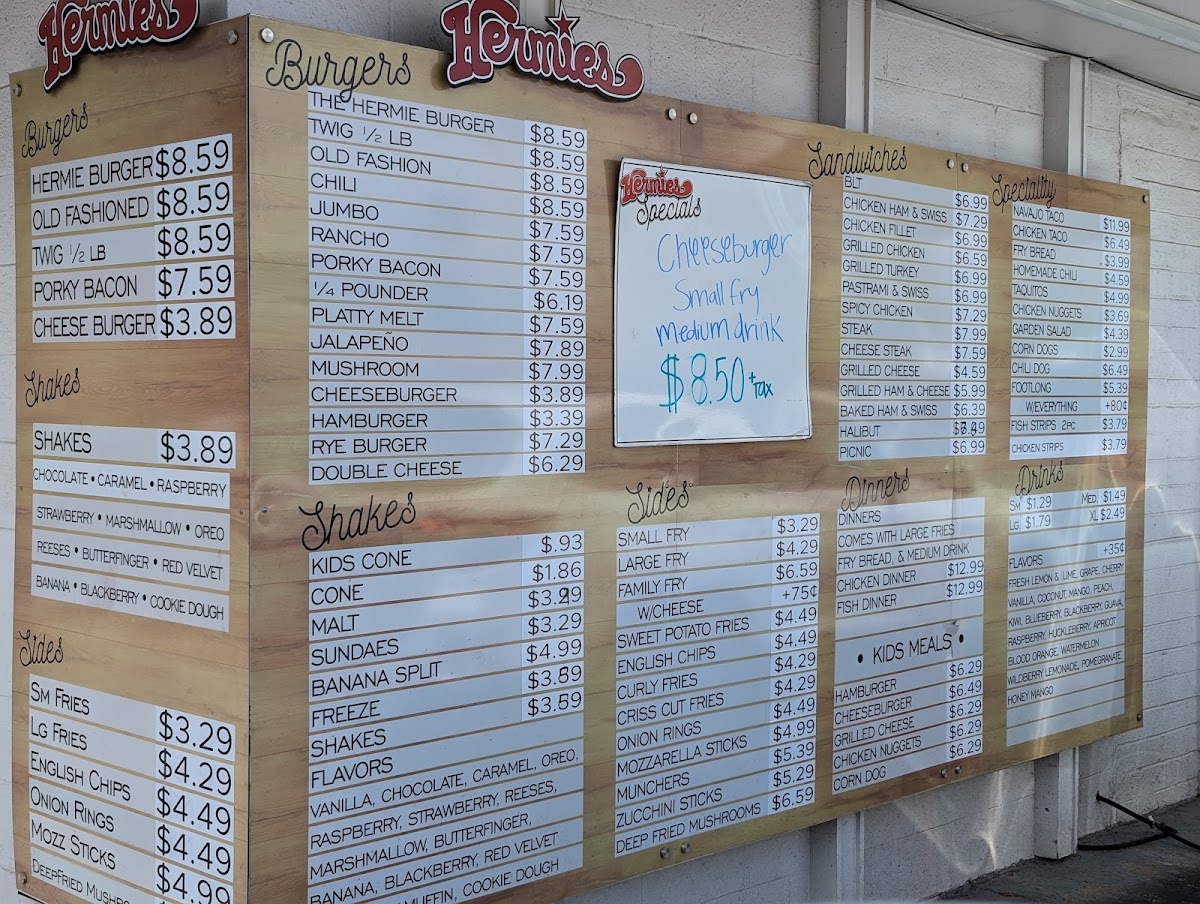 Hermies
Burgers
HERMIE BURGER $8.59
OLD FASHIONED $8.59
TWIG 1/2 LB $8.59
PORKY BACON $7.59
CHEESE BURGER $3.89
Shakes
SHAKES $3.89
CHOCOLATE • CARAMEL • RASPBERRY
STRAWBERRY • MARSHMALLOW • OREO
REESES • BUTTERFINGER • RED VELVET
BANANA • BLACKBERRY • COOKIE DOUGH
Sides
SM FRIES $3.29
LG FRIES $4.29
ENGLISH CHIPS $4.49
ONION RINGS $4.49
MOZZ STICKS $4.99
DEEPFRIED
Hermies
Burgers
THE HERMIE BURGER $8.59
TWIG 1/2 LB $8.59
OLD FASHION $8.59
CHILI $8.59
JUMBO $7.59
RANCHO $7.59
PORKY BACON $7.59
1/4 POUNDER $6.19
PLATTY MELT $7.59
JALAPEÑO $7.89
MUSHROOM $7.99
CHEESEBURGER $3.89
HAMBURGER $3.39
RYE BURGER $7.29
DOUBLE CHEESE $6.29
Shakes
KIDS CONE $.93
CONE $1.86
MALT
SUNDAES $3.29
BANANA SPLIT $4.99
FREEZE $3.89
SHAKES $3.59
FLAVORS
VANILLA, CHOCOLATE, CARAMEL, OREO,
RASPBERRY, STRAWBERRY, REESES,
MARSHMALLOW, BUTTERFINGER,
BANANA, BLACKBERRY, RED VELVET
COOKIE DOUGH
Hermies
Specials
Cheeseburger
Small fry
medium drink
$8.50 + tax
Sides
SMALL FRY $3.29
LARGE FRY $4.29
FAMILY FRY $6.59
W/CHEESE +75¢
SWEET POTATO FRIES $4.49
ENGLISH CHIPS $4.49
CURLY FRIES $4.29
CRISS CUT FRIES $4.29
ONION RINGS $4.49
MOZZARELLA STICKS $4.99
MUNCHERS $5.39
ZUCCHINI STICKS $5.29
DEEP FRIED MUSHROOMS $6.59
Sandwiches
BLT $6.99
CHICKEN HAM & SWISS $7.29
CHICKEN FILLET $6.99
GRILLED CHICKEN $6.59
GRILLED TURKEY $6.99
PASTRAMI & SWISS $6.99
SPICY CHICKEN $7.29
STEAK $7.99
CHEESE STEAK $7.59
GRILLED CHEESE $4.59
GRILLED HAM & CHEESE $5.99
BAKED HAM & SWISS $6.39
HALIBUT
PICNIC $6.99
Dinners
DINNERS
COMES WITH LARGE FRIES
FRY BREAD, & MEDIUM DRINK
CHICKEN DINNER $12.99
FISH DINNER $12.99
• KIDS MEALS •
HAMBURGER $6.29
CHEESEBURGER $6.49
GRILLED CHEESE $6.29
CHICKEN NUGGETS $6.29
CORN DOG $6.29
Speciality
NAVAJO TACO $11.99
CHICKEN TACO $6.49
FRY BREAD $3.99
HOMEMADE CHILI $4.59
TAQUITOS $4.99
CHICKEN NUGGETS $3.69
GARDEN SALAD $4.39
CORN DOGS $2.99
CHILI DOG $6.49
FOOTLONG $5.39
W/EVERYTHING +80¢
FISH STRIPS 2PC $3.79
CHICKEN STRIPS $3.79
Drinks
SM $1.29 MED. $1.49
LG $1.79 XL $2.49
FLAVORS +35¢
FRESH LEMON & LIME, GRAPE, CHERRY
VANILLA, COCONUT, MANGO, PEACH,
KIWI, BLUEBERRY, BLACKBERRY, GUAVA,
RASPBERRY, HUCKLEBERRY, APRICOT
BLOOD ORANGE, WATERMELON
WILDBERRY LEMONADE, POMEGRANATE
HONEY MANGO